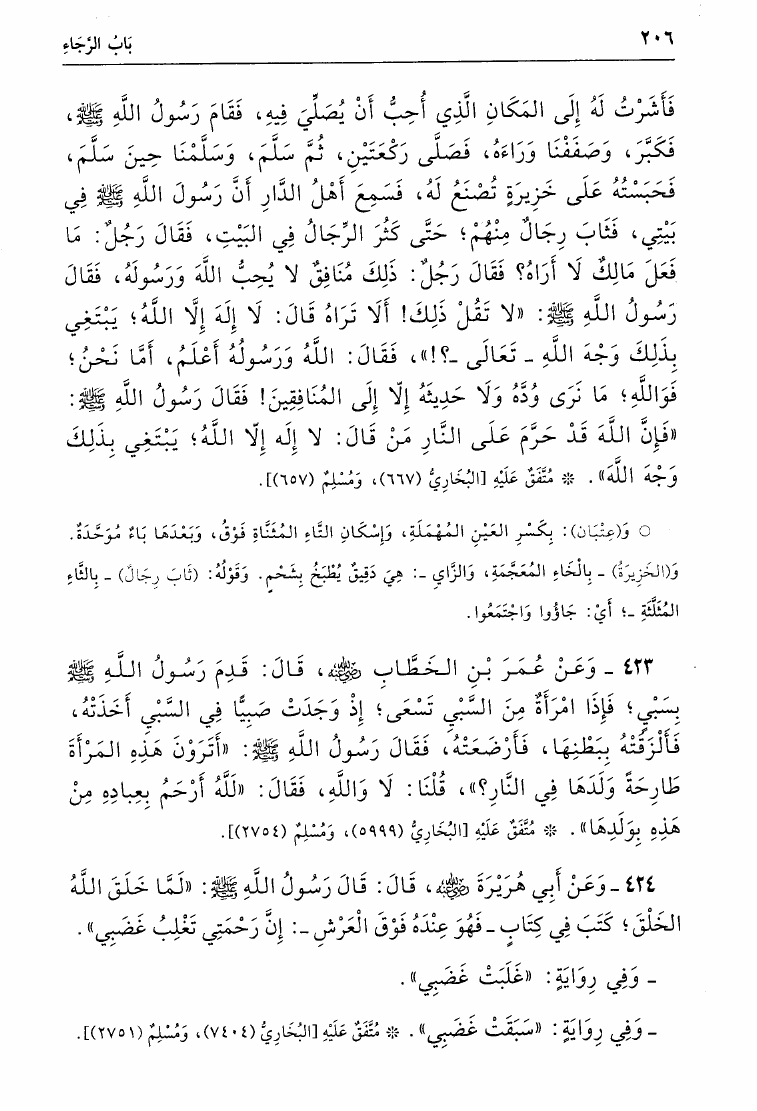 ٢٠٦ بَابُ الرَّجَاءِ
فَأَشَرْتُ لَهُ إِلَى المَكَانِ الَّذِي أُحِبُّ أَنْ يُصَلِّيَ فِيهِ، فَقَامَ رَسُولُ اللَّهِ ﷺ،
فَكَبَّرَ، وَصَفَفْنَا وَرَاءَهُ، فَصَلَّى رَكْعَتَيْنِ، ثُمَّ سَلَّمَ، وَسَلَّمْنَا حِينَ سَلَّمَ،
فَحَبَسْتُهُ عَلَى خَزِيرَةٍ تُصْنَعُ لَهُ، فَسَمِعَ أَهْلُ الدَّارِ أَنَّ رَسُولَ اللَّهِ ﷺ فِي
بَيْتِي، فَثَابَ رِجَالٌ مِنْهُمْ؛ حَتَّى كَثُرَ الرِّجَالُ فِي البَيْتِ، فَقَالَ رَجُلٌ: مَا
فَعَلَ مَالِكٌ لَا أَرَاهُ؟ فَقَالَ رَجُلٌ: ذَلِكَ مُنَافِقٌ لَا يُحِبُّ اللَّهَ وَرَسُولَهُ، فَقَالَ
رَسُولُ اللَّهِ ﷺ: «لا تَقُلْ ذَلِكَ! أَلَا تَرَاهُ قَالَ: لَا إِلَهَ إِلَّا اللَّهُ؛ يَبْتَغِي
بِذَلِكَ وَجْهَ اللَّهِ ـ تَعَالَى ـ؟!»، فَقَالَ: اللَّهُ وَرَسُولُهُ أَعْلَمُ، أَمَّا نَحْنُ؛
فَوَاللَّهِ؛ مَا نَرَى وُدَّهُ وَلَا حَدِيثَهُ إِلَّا إِلَى المُنَافِقِينَ! فَقَالَ رَسُولُ اللَّهِ ﷺ:
«فَإِنَّ اللَّهَ قَدْ حَرَّمَ عَلَى النَّارِ مَنْ قَالَ: لا إِلَه إِلّا اللَّهُ؛ يَبْتَغِي بِذَلِكَ
وَجْهَ اللَّهَ». ❊ مُتَّفَقٌ عَلَيْهِ [البُخَارِيُّ (٦٦٧)، وَمُسْلِمٌ (٦٥٧)].
○ وَ(عِتْبَان): بِكَسْرِ العَيْنِ المُهْمَلَةِ، وَإِسْكَانِ التَّاءِ المُثَنَّاةِ فَوْقُ، وَبَعْدَهَا بَاءٌ مُوَحَّدَةٌ.
وَ(الخَزِيرَةُ) ـ بِالْخَاءِ المُعَجَّمَةِ، وَالزَّايِ ـ: هِيَ دَقِيقٌ يُطْبَخُ بِشَحْمٍ. وَقَوْلُهُ: (ثَابَ رِجَالٌ) ـ بِالثَّاءِ
المُثَلَّثَةِ ـ؛ أَيْ: جَاؤُوا وَاجْتَمَعُوا.
٤٢٣ ـ وَعَنْ عُمَرَ بْنِ الخَطَّابِ ﵁، قَالَ: قَدِمَ رَسُولُ اللَّهِ ﷺ
بِسَبْيٍ؛ فَإِذَا امْرَأَةٌ مِنَ السَّبْيِ تَسْعَى؛ إِذْ وَجَدَتْ صَبِيًّا فِي السَّبْيِ أَخَذَتْهُ،
فَأَلْزَقَتْهُ بِبَطْنِهَا، فَأَرْضَعَتْهُ، فَقَالَ رَسُولُ اللَّهِ ﷺ: «أَتَرَوْنَ هَذِهِ المَرْأَةَ
طَارِحَةً وَلَدَهَا فِي النَّارِ؟»، قُلْنَا: لَا وَاللَّهِ، فَقَالَ: «لَلَّهُ أَرْحَمُ بِعِبادِهِ مِنْ
هَذِهِ بِوَلَدِهَا». ❊ مُتَّفَقٌ عَلَيْهِ [البُخَارِيُّ (٥٩٩٩)، وَمُسْلِمٌ (٢٧٥٤)].
٤٢٤ ـ وَعَنْ أَبِي هُرَيْرَةَ ﵁، قَالَ: قَالَ رَسُولُ اللَّهِ ﷺ: «لَمَّا خَلَقَ اللَّهُ
الخَلْقَ؛ كَتَبَ فِي كِتَابٍ ـ فَهُوَ عِنْدَهُ فَوْقَ الْعَرْشِ ـ: إِنَّ رَحْمَتِي تَغْلِبُ غَضَبِي».
ـ وَفِي رِوَايَةٍ: «غَلَبَتْ غَضَبِي».
ـ وَفِي رِوَايَةٍ: «سَبَقَتْ غَضَبِي». ❊ مُتَّفَقٌ عَلَيْهِ [البُخَارِيُّ (٧٤٠٤)، وَمُسْلِمٌ (٢٧٥١)].